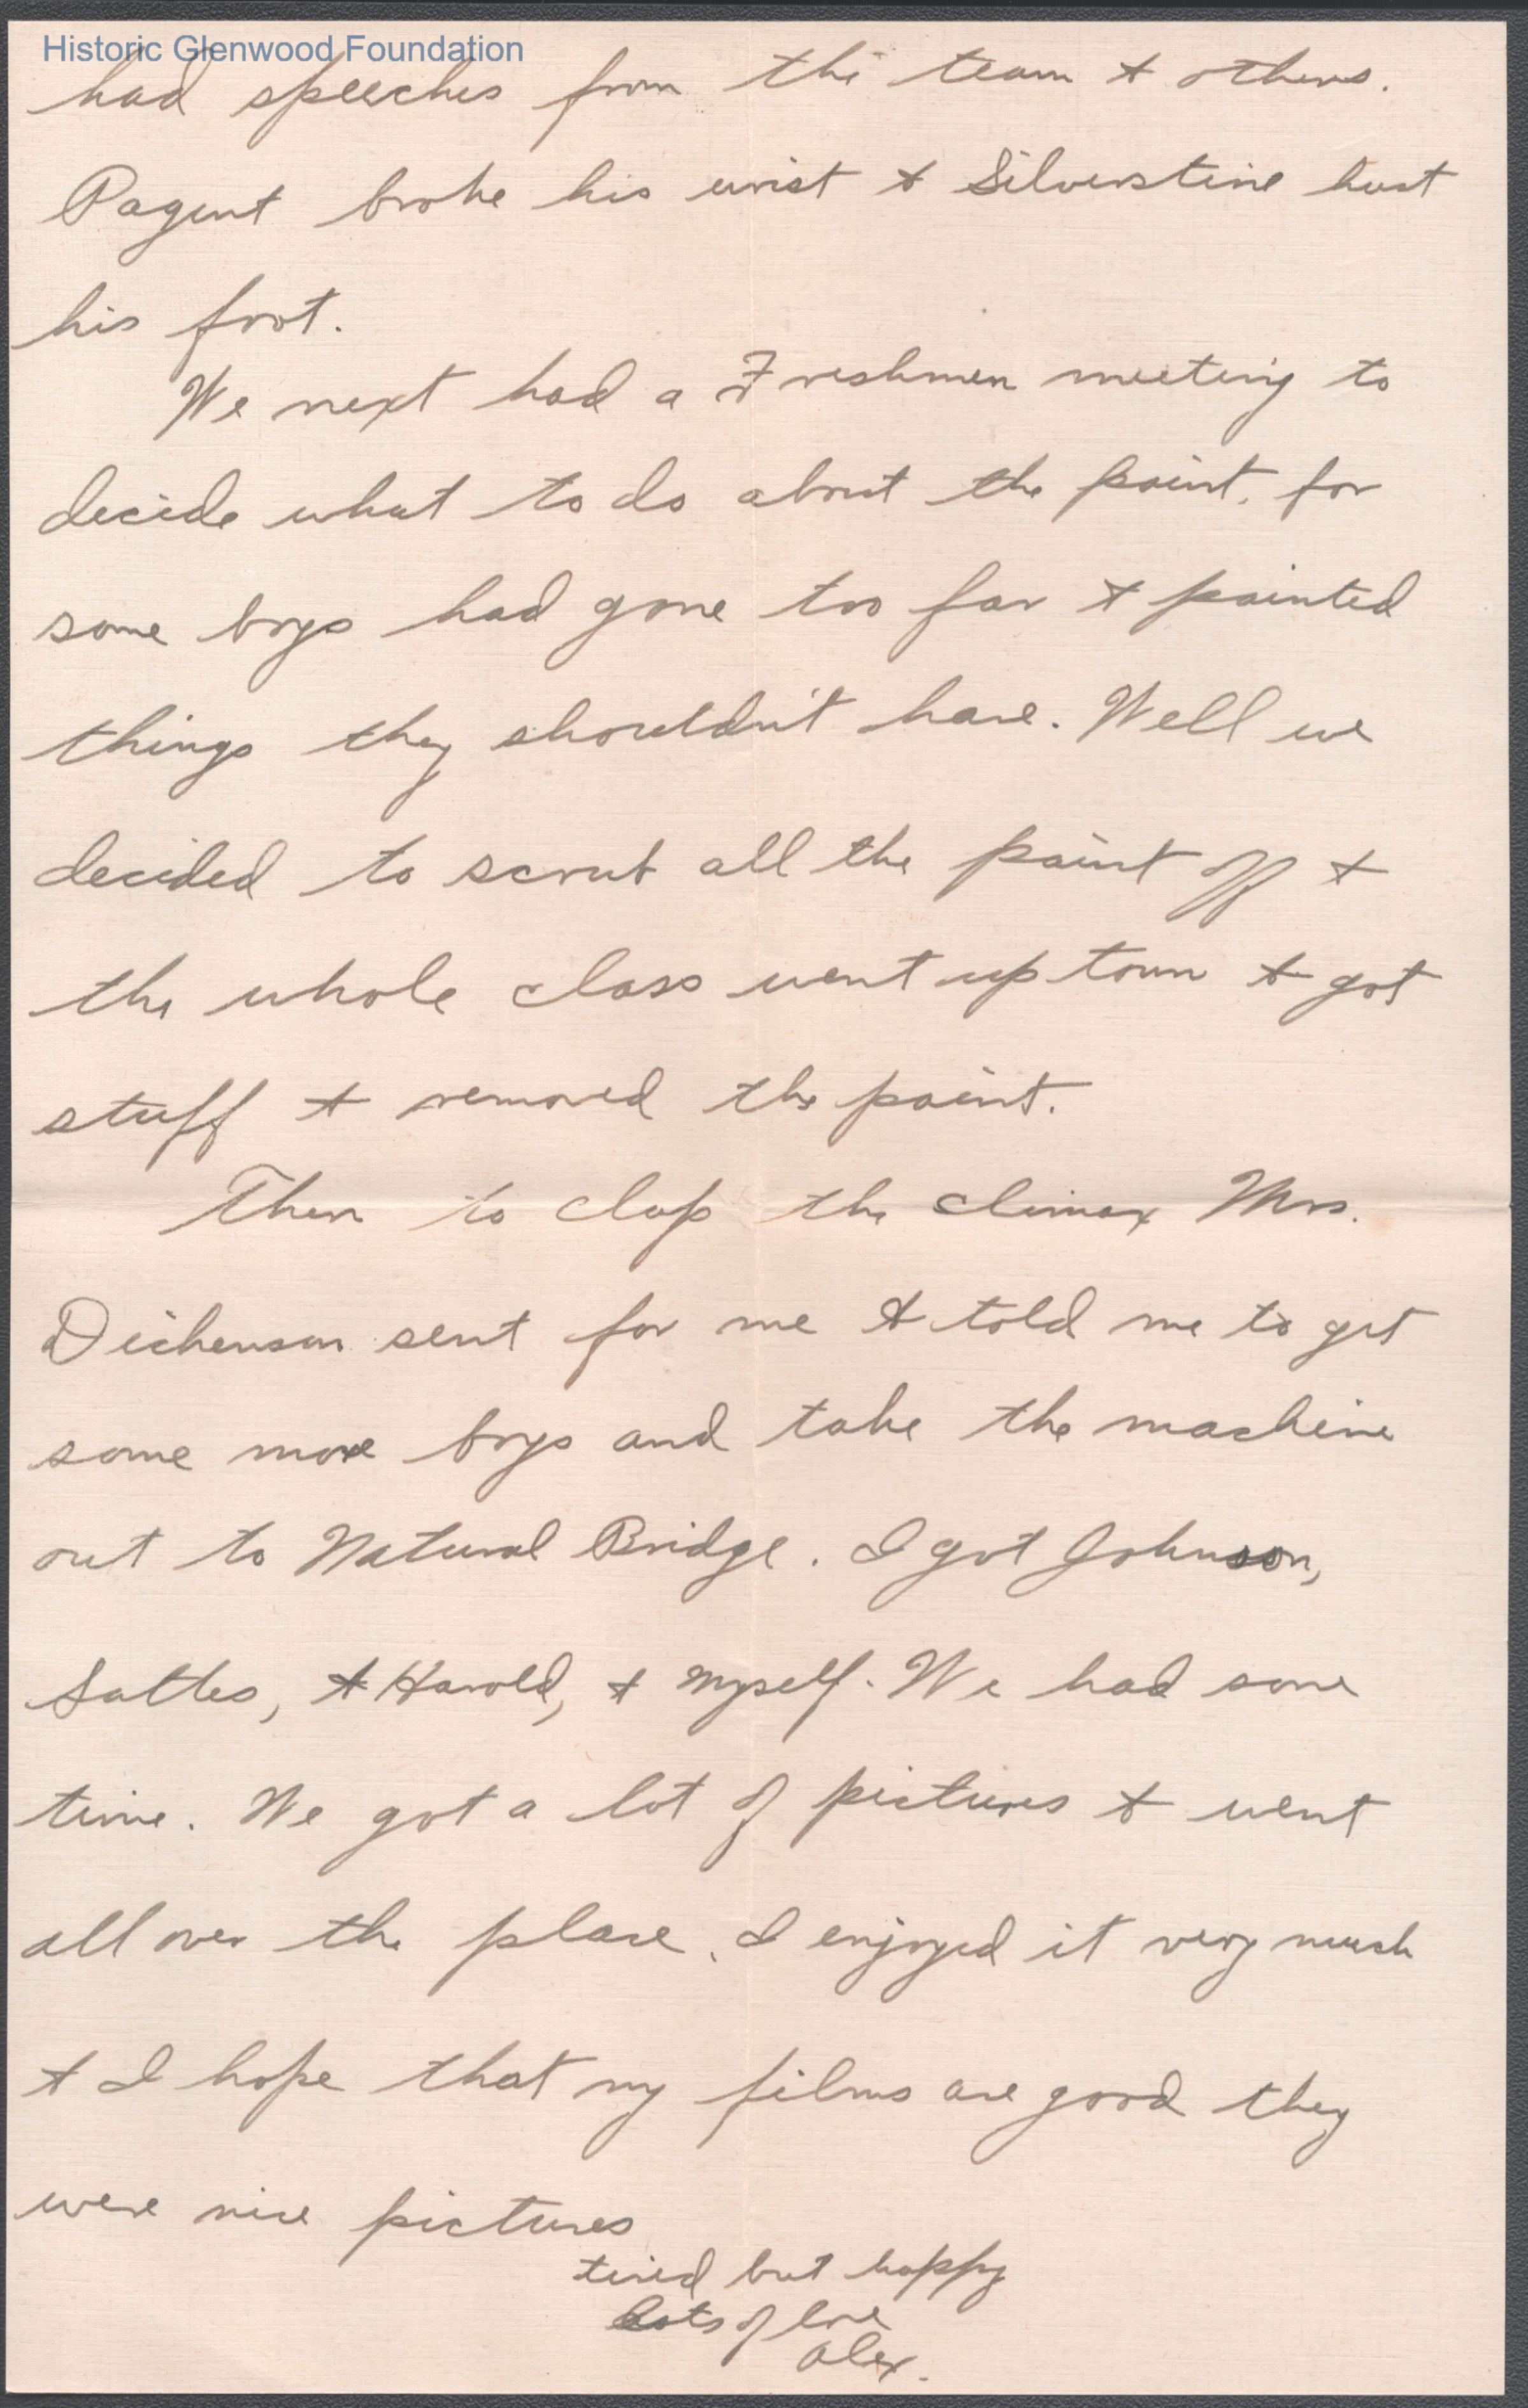 Historic Glenwood Foundation
had speeches from the team & others.
Pagent broke his wrist & Silverstine hurt
his foot.
We next had a Freshmen meeting to
decide what to do about the paint, for
some boys had gone too far & painted
things they shouldn't have. Well we
decided to scrub all the paint off &
the whole class went up town & got
stuff & removed the paint.
Then to clap the climax Mrs.
Dickenson sent for me & told me to get
some more boys and take the machine
out to Natural Bridge. I got Johnson,
Sattes, & Harold, & myself. We had some
time. We got a lot of pictures & went
all over the place. I enjoyed it very much
& I hope that my films are good they
were nice pictures
tired but happy
Lots of love
Alex.